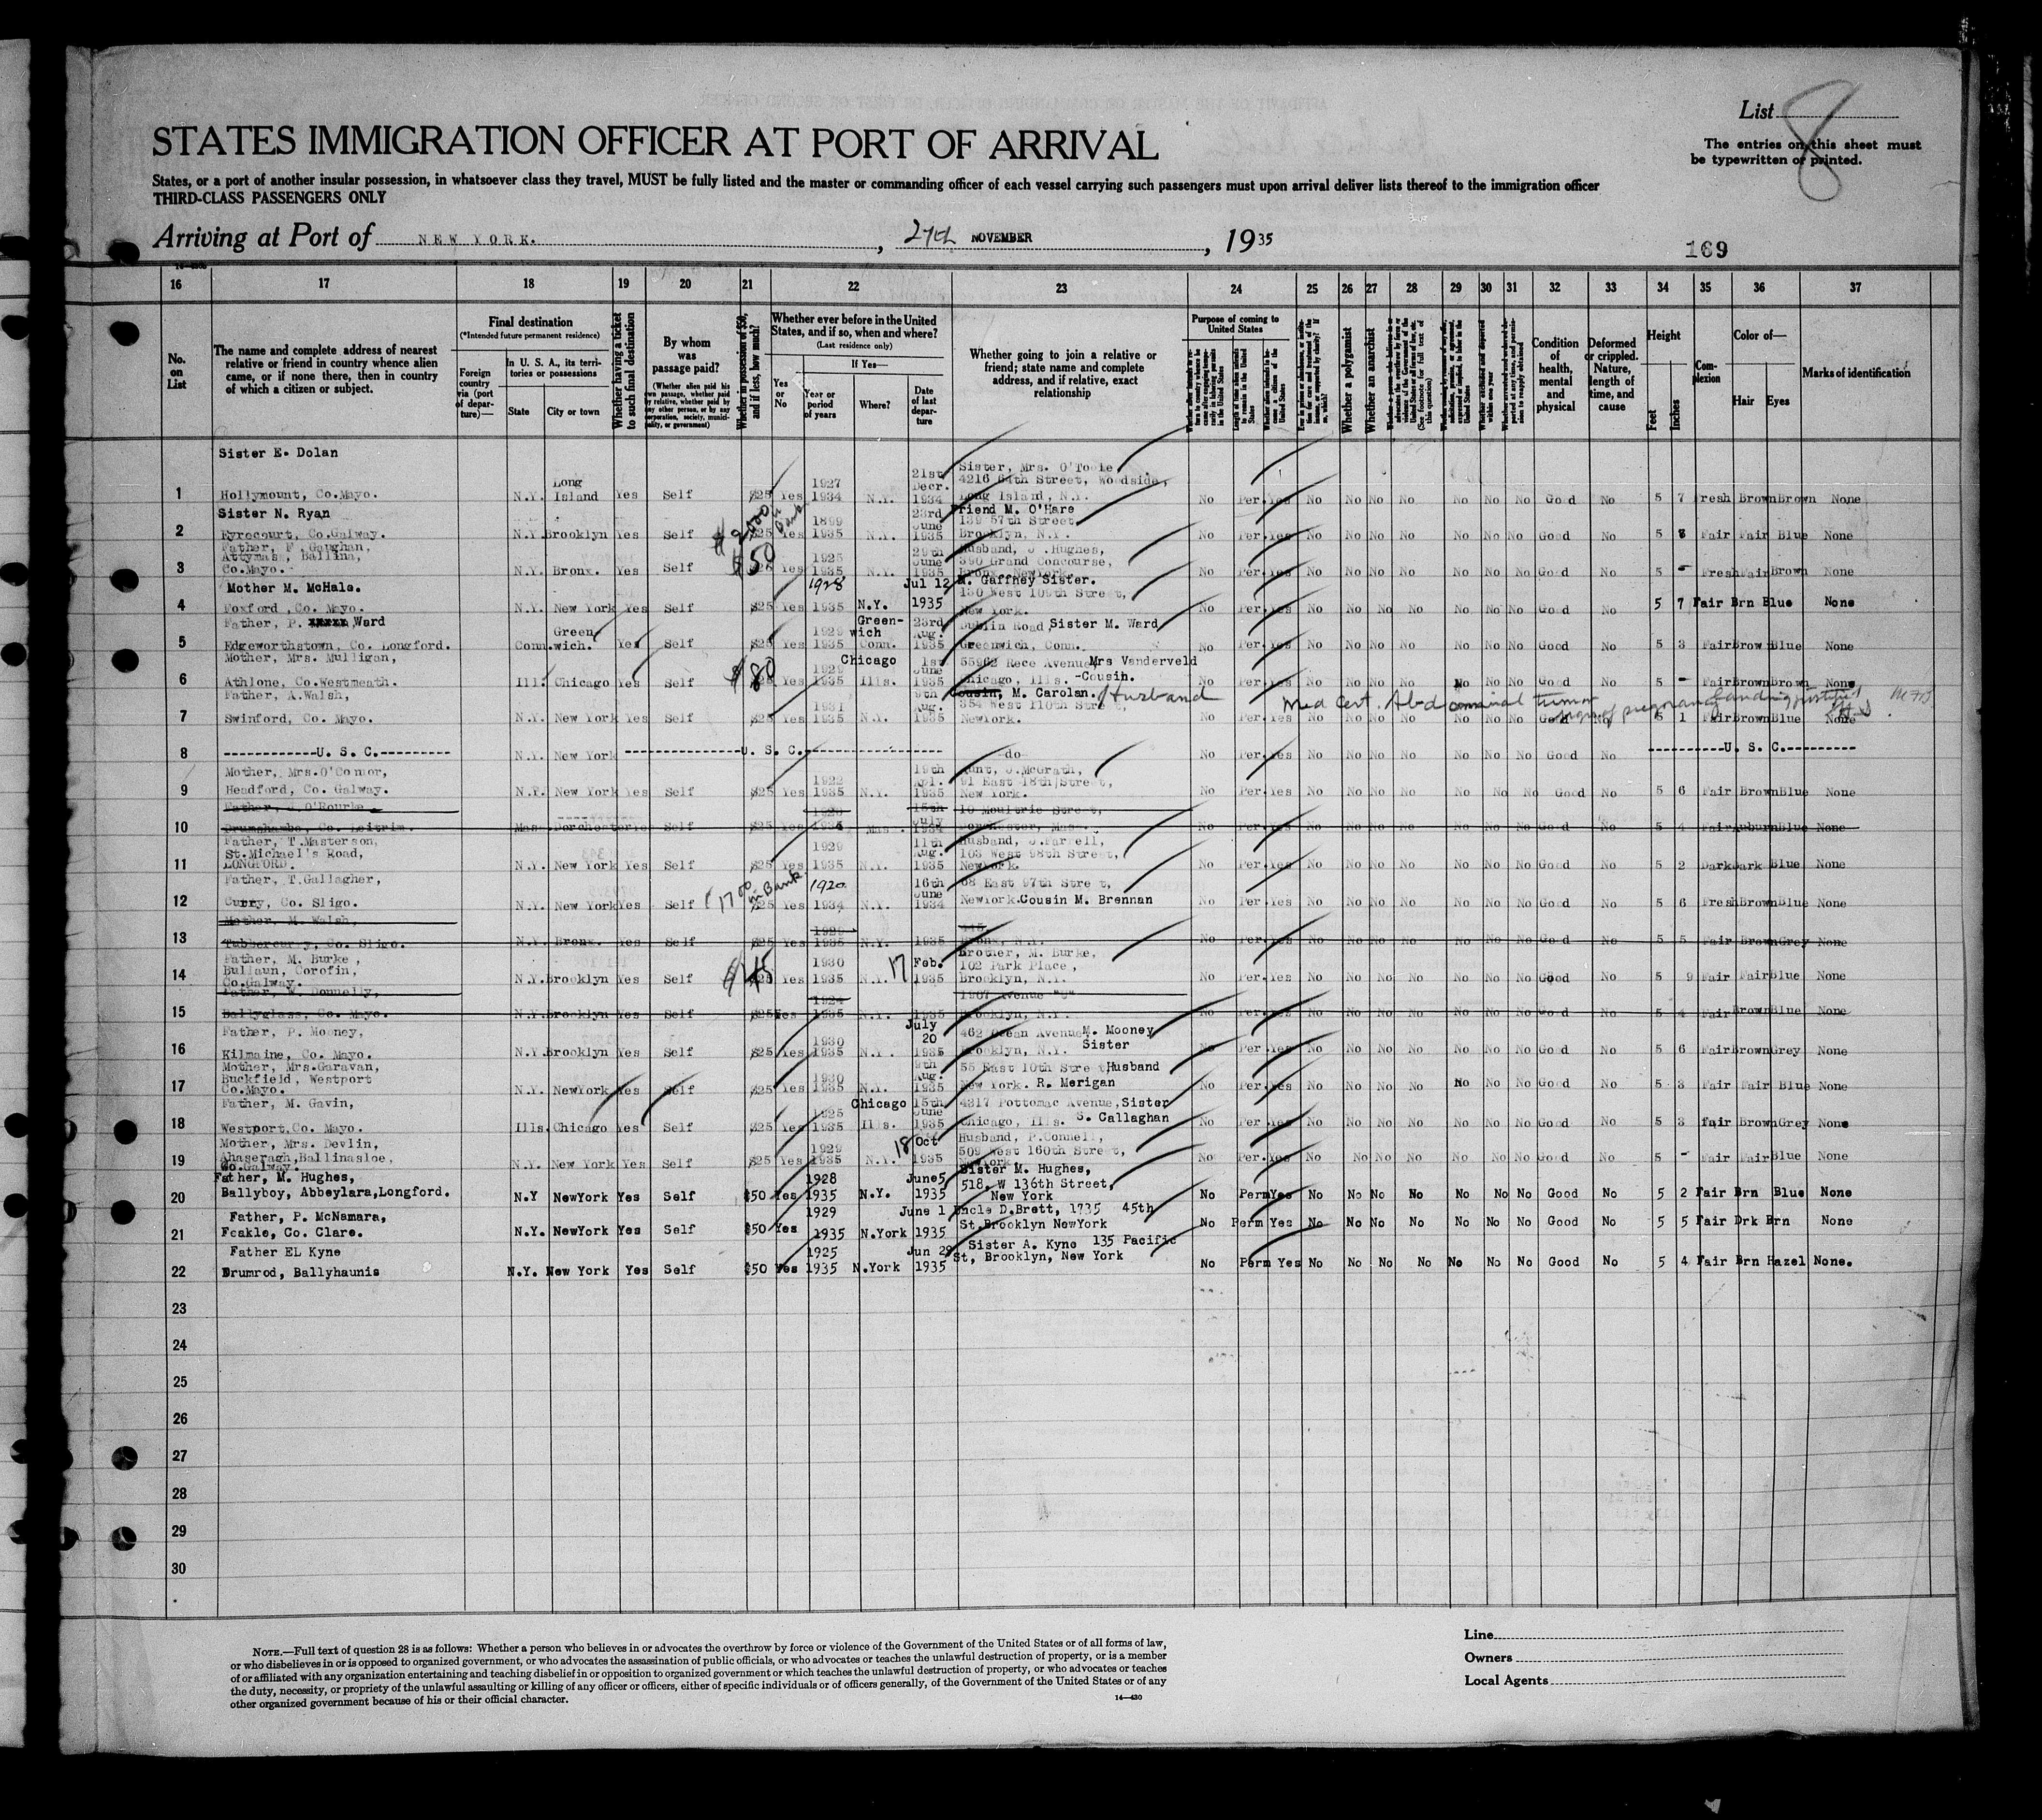 List 8
The entries on this sheet must
be typewritten or printed.
STATES IMMIGRATION OFFICER AT PORT OF ARRIVAL
States, or a port of another insular possession, in whatsoever class they travel, MUST be fully listed and the master or commanding officer of each vessel carrying such passengers must upon arrival deliver lists thereof to the immigration officer
THIRD-CLASS PASSENGERS ONLY
Arriving at Port of NEW YORK. , 27th NOVEMBER , 1935
169
16 17 18 19 20 21 22 23 24 25 26 27 28 29 30 31 32 33 34 35 36 37
No. on List
The name and complete address of nearest relative or friend in country whence alien came, or if none there, then in country of which a citizen or subject.
Final destination
(*Intended future permanent residence)
Foreign country via (port of departure)—
In U. S. A., its territories or possessions
State City or town
Whether having a ticket to such final destination
By whom was passage paid?
(Whether alien paid his own passage, whether paid by relative, whether paid by any other person, or by any corporation, society, municipality, or government)
Whether in possession of $50, and if less, how much?
Whether ever before in the United States, and if so, when and where?
(Last residence only)
Yes or No
If Yes—
Year or period of years Where? Date of last departure
Whether going to join a relative or friend; state name and complete address, and if relative, exact relationship
Purpose of coming to United States
Whether a polygamist
Whether an anarchist
Condition of health, mental and physical
Deformed or crippled. Nature, length of time, and cause
Height
Feet Inches
Complexion
Color of—
Hair Eyes
Marks of identification
Sister E. Dolan
1 Hollymount, Co.Mayo. N.Y. Long Island Yes Self $25 Yes 1927 1934 N.Y. 21st Decr. 1934 Sister, Mrs. O'Toole 4216 64th Street, Woodside, Long Island, N.Y. No Per. Yes No No No No No No No Good No 5 7 Fresh Brown Brown None
Sister N. Ryan
2 Eyrecourt, Co.Galway. N.Y. Brooklyn Yes Self $25 $2000 in Bank Yes 1899 1935 N.Y. 23rd June 1935 Friend M. O'Hare 139 57th Street Brooklyn, N.Y. No Per. Yes No No No No No No No Good No 5 8 Fair Fair Blue None
Father, F. Gaughan,
Attymas, Ballina,
3 Co.Mayo. N.Y. Bronx. Yes Self $50 Yes 1925 1935 N.Y. 29th June 1935 Husband, J. Hughes, 390 Grand Concourse, Bronx, NewYork. No Per. Yes No No No No No No No Good No 5 - Fresh Fair Brown None
Mother M. McHale.
4 Foxford, Co. Mayo. N.Y. New York Yes Self $25 Yes 1928 1935 N.Y. Jul 12 1935 M. Gaffney Sister. 130 West 109th Street, New York. No Per. Yes No No No No No No No Good No 5 7 Fair Brn Blue None
Father, P. Ward
5 Edgeworthstown, Co. Longford. Conn. Greenwich. Yes Self $25 Yes 1929 1935 Greenwich Conn. 23rd Aug. 1935 Dublin Road, Sister M. Ward Greenwich, Conn. No Per. Yes No No No No No No No Good No 5 3 Fair Brown Blue None
Mother, Mrs. Mulligan,
6 Athlone, Co.Westmeath. Ill. Chicago Yes Self $80 Yes 1929 1935 Chicago Ills. 1st June 1935 Rece Avenue, Mrs Vanderveld Chicago, Ills. -Cousin. No Per. Yes No No No No No No No Good No 5 - Fair Brown Brown None
Father, A.Walsh,
7 Swinford, Co. Mayo. N.Y. New York Yes Self $25 Yes 1931 1935 N.Y. 9th Aug. 1935 Cousin, M. Carolan. / Husband 354 West 110th Street, NewYork. No Per. Yes No No No No No No No Good No 5 1 Fair Brown Blue None
Med Cert. Abdominal tumor
8 -----------U. S. C.--------- N.Y. New York -----------U. S. C.----------- -do- No Per. Yes No No No No No No No Good No ---------U. S. C.---------
Mother, Mrs.O'Connor,
9 Headford, Co. Galway. N.Y. New York Yes Self $25 Yes 1922 1935 N.Y. 19th Apl. 1935 Aunt, J.McGrath, 91 East 18th Street, New York. No Per. Yes No No No No No No No Good No 5 6 Fair Brown Blue None
Father, J.O'Rourke
10 Drumshambo, Co. Leitrim. Mass. Dorchester Yes Self $25 Yes 1934 Mas. 15th July 1934 10 Moultrie Street, Dorchester, Mass. No Per. Yes No No No No No No No Good No 5 4 Fair Auburn Blue None
Father, T.Masterson,
St.Michael's Road,
11 LONGFORD. N.Y. New York Yes Self $25 Yes 1929 1935 N.Y. 11th Aug. 1935 Husband, J.Farrell, 103 West 98th Street, NewYork. No Per. Yes No No No No No No No Good No 5 2 Dark Dark Blue None
Father, T.Gallagher,
12 Curry, Co. Sligo. N.Y. New York Yes Self $1700 in Bank $25 Yes 1920 1934 N.Y. 16th June 1934 68 East 97th Street, NewYork. Cousin M. Brennan No Per. Yes No No No No No No No Good No 5 6 Fresh Brown Blue None
Mother. M. Walsh,
13 Tubbercurry, Co. Sligo. N.Y. Bronx. Yes Self $25 Yes 1935 N.Y. 1935 Bronx, N.Y. No Per. Yes No No No No No No No Good No 5 5 Fair Brown Grey None
Father, M. Burke,
Bullaun, Corofin,
14 Co.Galway. N.Y. Brooklyn Yes Self $45 Yes 1930 1935 N.Y. 17 Feb. 1935 Brother, M. Burke, 102 Park Place, Brooklyn, N.Y. No Per. Yes No No No No No No No Good No 5 9 Fair Fair Blue None
Father, W. Donnelly,
15 Ballyglass, Co. Mayo. N.Y. Brooklyn Yes Self $25 Yes 1924 1935 N.Y. 1935 1907 Avenue Brooklyn, N.Y. No Per. Yes No No No No No No No Good No 5 4 Fair Brown Blue None
Father, P. Mooney,
16 Kilmaine, Co. Mayo. N.Y. Brooklyn Yes Self $25 Yes 1930 1935 N.Y. July 20 1935 462 Ocean Avenue, M. Mooney Brooklyn, N.Y. Sister No Per Yes No No No No No No No Good No 5 6 Fair Brown Grey None
Mother, Mrs.Garavan,
Buckfield, Westport
17 Co.Mayo. N.Y. NewYork Yes Self $25 Yes 1930 1935 N.Y. 9th Aug. 1935 55 East 10th Street, Husband New York. R. Merigan No Per. Yes No No No No No No No Good No 5 3 Fair Fair Blue None
Father, M. Gavin,
18 Westport, Co. Mayo. Ills. Chicago Yes Self $25 Yes 1925 1935 Chicago Ills. 15th June 1935 4317 Pottomac Avenue, Sister Chicago, Ills. S. Callaghan No Per. Yes No No No No No No No Good No 5 3 fair Brown Grey None
Mother, Mrs. Devlin,
Ahaseragh, Ballinasloe,
19 Co.Galway. N.Y. New York Yes Self $25 Yes 1929 1935 N.Y. 18 Oct 1935 Husband, P.Connell, 509 West 160th Street, NewYork. No Per. Yes No No No No No No No Good No 5 - Fair Fair Blue None
Father, M. Hughes,
20 Ballyboy, Abbeylara, Longford. N.Y NewYork Yes Self $50 Yes 1928 1935 N.Y. June5 1935 Sister M. Hughes, 518. W 136th Street, New York No Perm Yes No No No No No No No Good No 5 2 Fair Brn Blue None
Father, P. McNamara,
21 Feakle, Co. Clare. N.Y. NewYork Yes Self $50 Yes 1929 1935 N.York June 1 1935 Uncle D.Brett, 1735 45th St.Brooklyn NewYork No Perm Yes No No No No No No No Good No 5 5 Fair Drk Brn None
Father EL Kyne
22 Drumrod, Ballyhaunis N.Y. New York Yes Self $50 Yes 1925 1935 N.York Jun 29 1935 Sister A. Kyne 135 Pacific St, Brooklyn, New York No Perm Yes No No No No No No No Good No 5 4 Fair Brn Hazel None.
23
24
25
26
27
28
29
30
NOTE.—Full text of question 28 is as follows: Whether a person who believes in or advocates the overthrow by force or violence of the Government of the United States or of all forms of law,
or who disbelieves in or is opposed to organized government, or who advocates the assassination of public officials, or who advocates or teaches the unlawful destruction of property, or is a member
of or affiliated with any organization entertaining and teaching disbelief in or opposition to organized government or which teaches the unlawful destruction of property, or who advocates or teaches
the duty, necessity, or propriety of the unlawful assaulting or killing of any officer or officers, either of specific individuals or of officers generally, of the Government of the United States or of any
other organized government because of his or their official character.
14—430
Line
Owners
Local Agents